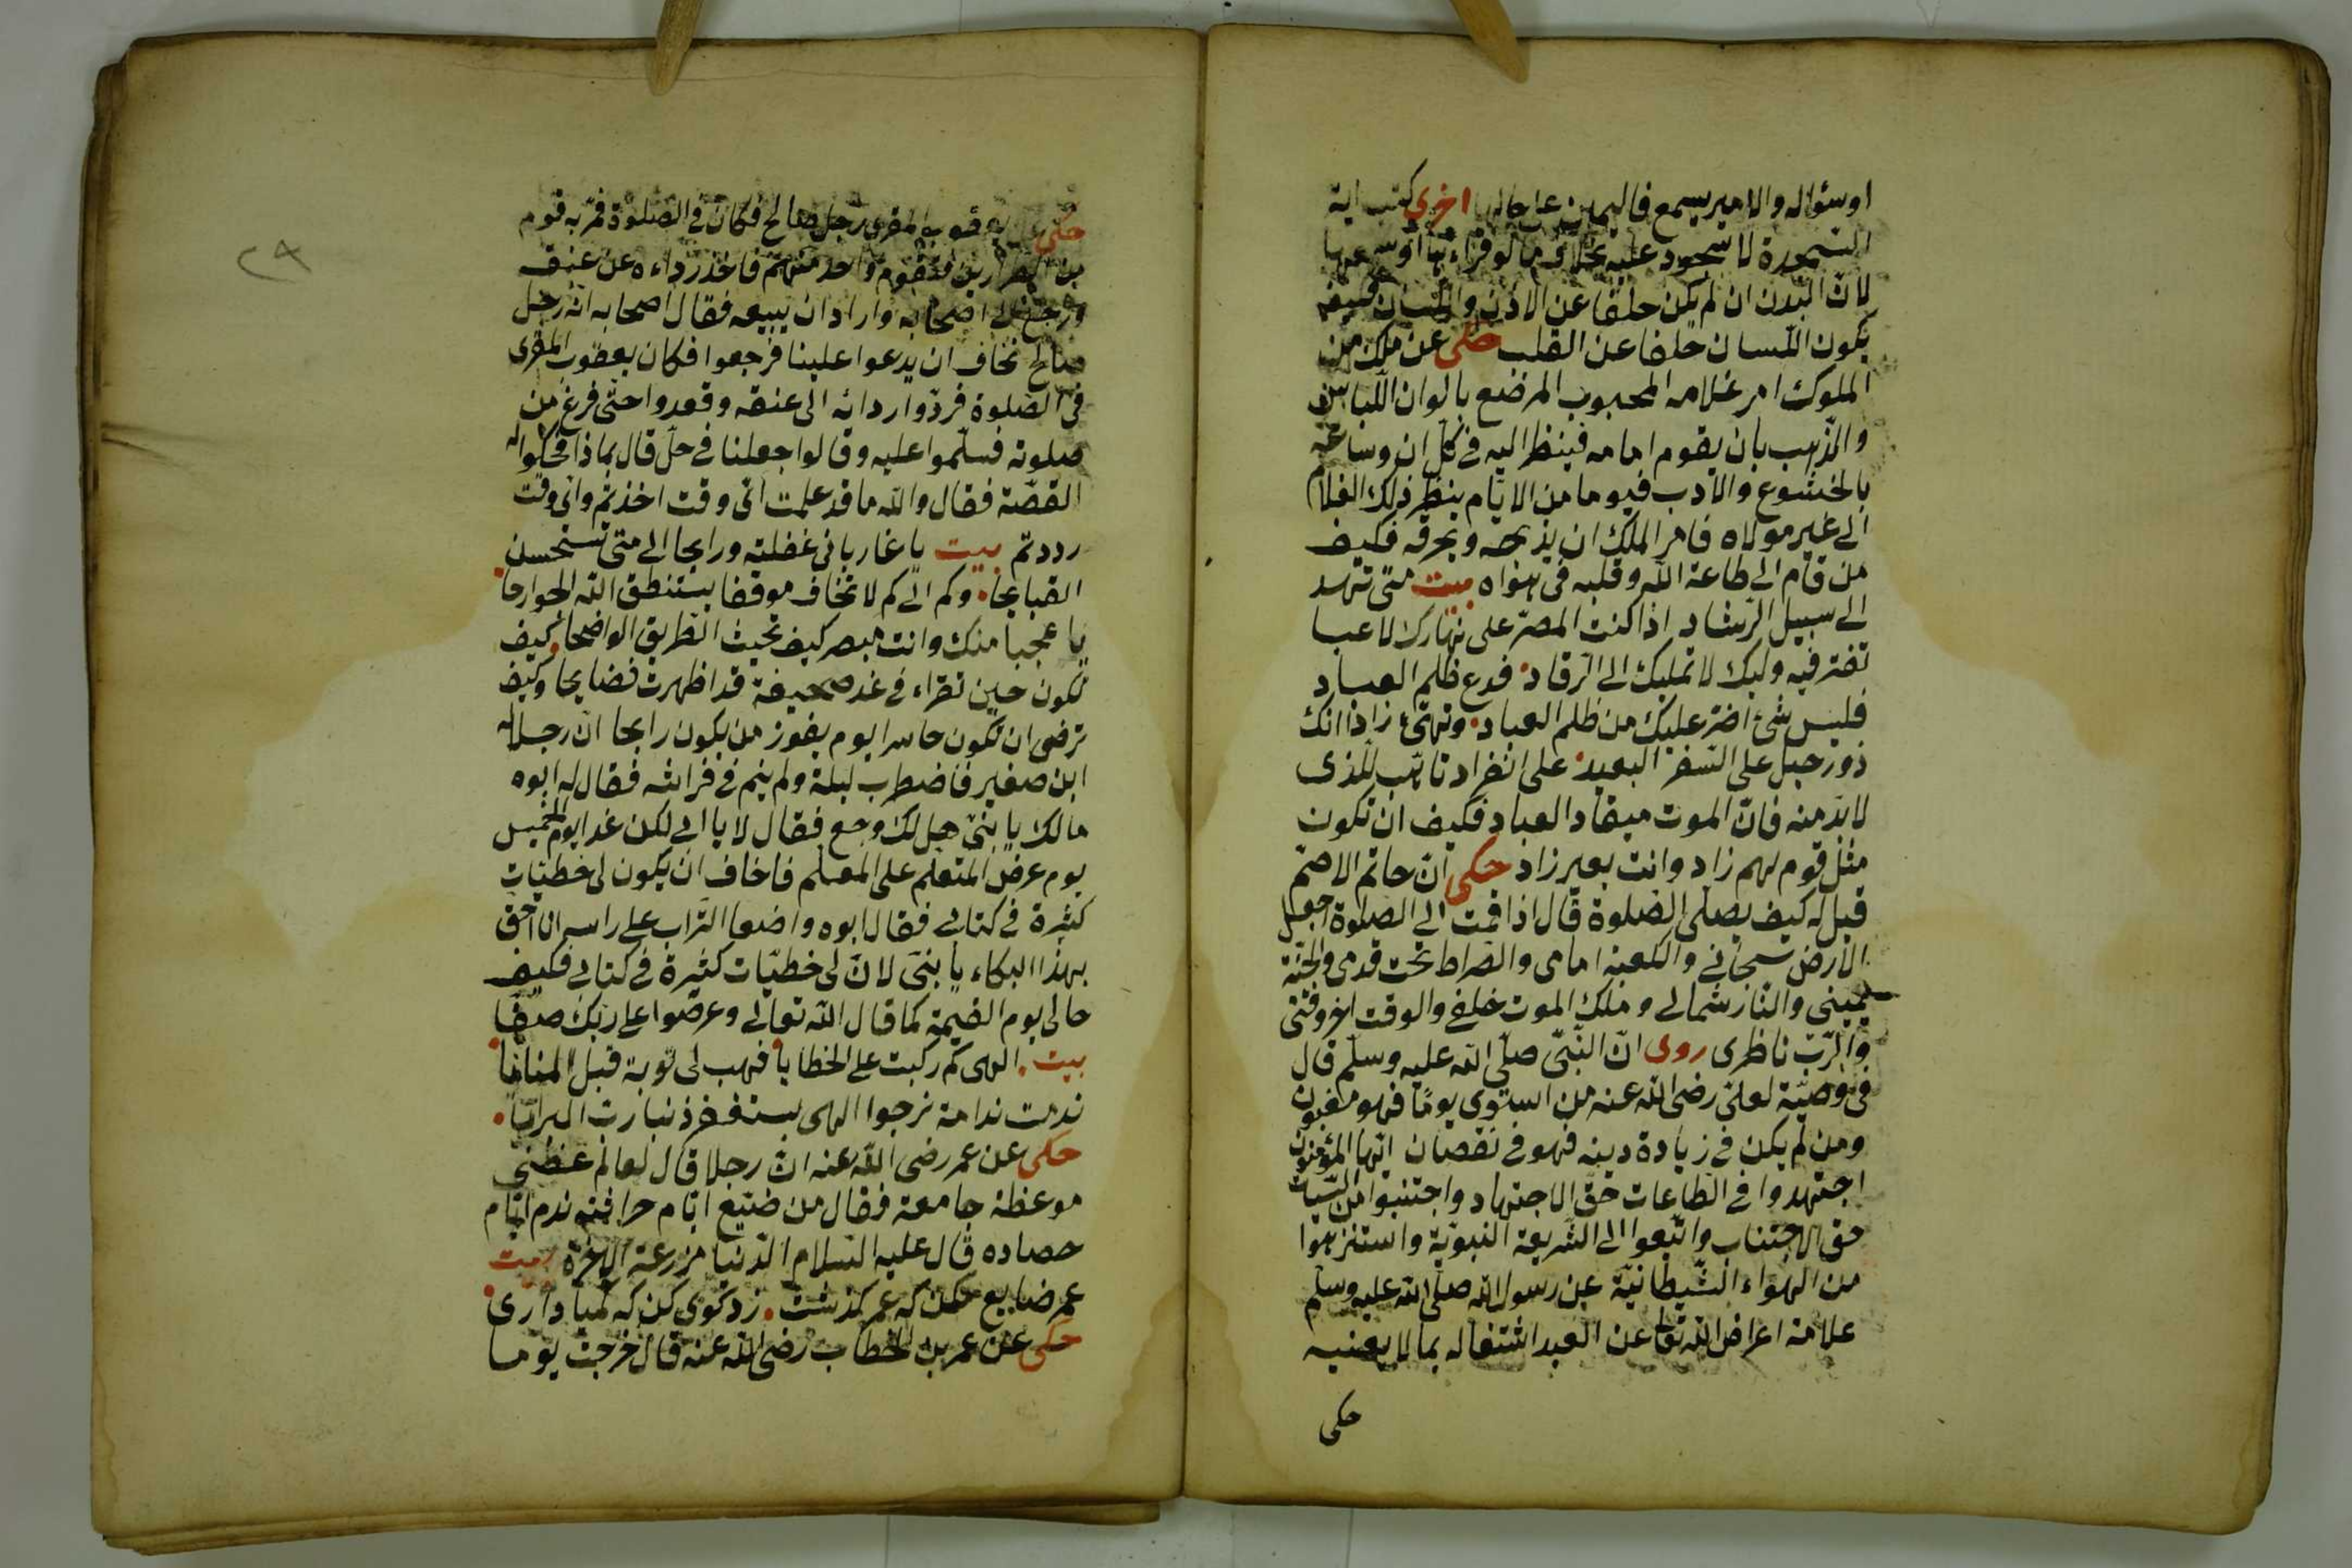 او سؤاله والامير يسمع فاليمين على حالها اخرى كتب اية
السجدة لا سجود عليه بخلاف ما لو قراءها او سمعها
لان البدن ان لم يكن خلفا عن الاذن واللسان فكيف
يكون اللسان خلفا عن القلب حكى عن ملك من
الملوك امر غلامه المحبوب المرضع بالوان اللباس
والذهب بان يقوم امامه فينظر اليه فى كل ان وساعة
بالخشوع والادب فيوما من الايام ينظر ذلك الغلام
الى غير مولاه فامر الملك ان يذبحه ويحرقه فكيف
من قام الى طاعة الله وقلبه فى هواه بيت متى تهد
الى سبيل الرشاد اذا كنت المصر على نهارك لاعبا
تفتر فيه وليك لا تمليك الى الرقاد فدع ظلم العباد
فليس شئ اضر عليك من ظلم العباد وتهئ زاذا انك
ذو رحيل على السفر البعيد على انفراد تاهب للذى
لا بد منه فان الموت ميقاد العباد فكيف ان تكون
مثل قوم لهم زاد وانت بغير زاد حكى ان حاتم الاصم
قيل له كيف يصلى الصلوة قال اذا قمت الى الصلوة اجعل
الارض سبحانى والكعبة امامى والصراط تحت قدمى والجنة
يمينى والنار شمالى وملك الموت خلفى والوقت اخر وقتى
والرب ناظرى روى ان النبى صلى الله عليه وسلم قال
فى وصية لعلى رضى الله عنه من استوى يوما فهو مغبون
ومن لم يكن فى زيادة دينه فهو فى نقصان ايها المؤمنون
اجتهدوا فى الطاعات حق الاجتهاد واجتنبوا من السيات
حق الاجتناب واتبعوا الى الشريعة النبوية واستنزهوا
من الهواء الشيطانية عن رسول الله صلى الله عليه وسلم
علامة اعراض الله تعالى عن العبد اشتغاله بما لا يعنيه
حكى
٢٩
حكى عن يعقوب المقرى رجل صالح فكان فى الصلوة فمر به قوم
من الطرارين فتقوم واحد منهم فاخذ رداءه عن عنقه
ورجع الى اصحابه واراد ان يبيعه فقال اصحابه انه رجل
صالح نخاف ان يدعوا علينا فرجعوا فكان يعقوب المقرى
فى الصلوة فردوا ردائه الى عنقه وقعدوا حتى فرغ من
صلوته فسلموا عليه وقالوا جعلنا فى حل قال بماذا فحكوا له
القصة فقال والله ما قد علمت اى وقت اخذتم واى وقت
رددتم بيت يا غاربا فى غفلته ورايحا الى متى تستحسن
القبايحا وكم الى كم لا تخاف موقفا يستنطق الله الجوارحا
يا عجبا منك وانت مبصر كيف تحيث الطريق الواضحا كيف
تكون حين تقراء فى غد صحيفة قد اظهرت فضايحا وكيف
ترضى ان تكون خاسرا يوم يفوز من يكون رابحا ان رجلا له
ابن صغير فاضطرب ليلة ولم ينم فى فراشه فقال له ابوه
مالك يا بنى هل لك وجع فقال لا يا ابى لكن غدا يوم الخميس
يوم عرض المتعلم على المعلم فاخاف ان يكون لى خطيات
كثيرة فى كتابى فقال ابوه واضعا التراب على راسه انا احق
بهذا البكاء يا بنى لان لى خطيات كثيرة فى كتابى فكيف
حالى يوم القيمة كما قال الله تعالى وعرضوا على ربك صفا
بيت الهى كم ركبت على الخطايا فهب لى توبة قبل المنايا
ندمت ندامة نرجوا الهى بستغفر ذنبا رب البرايا
حكى عن عمر رضى الله عنه ان رجلا قال لعالم عظنى
موعظة جامعة فقال من ضيع ايام حراثته ندم ايام
حصاده قال عليه السلام الدنيا مزرعة الاخرة بيت
عمر ضايع مكن كه عمر كذشت زد كوى كن كه تيادارى
حكى عن عمر بن الخطاب رضى الله عنه قال خرجت يوما